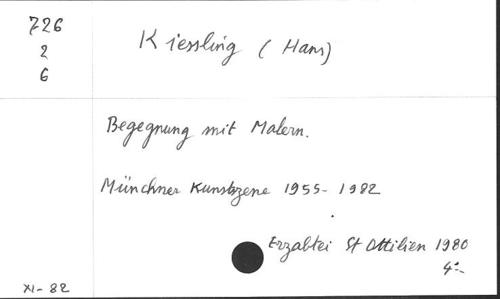 726
2
6
Kiessling (Hans)
Begegnung mit Malern.
Münchner Kunstszene 1955-1982
Erzabtei St Ottilien 1980
4°-
XI-82